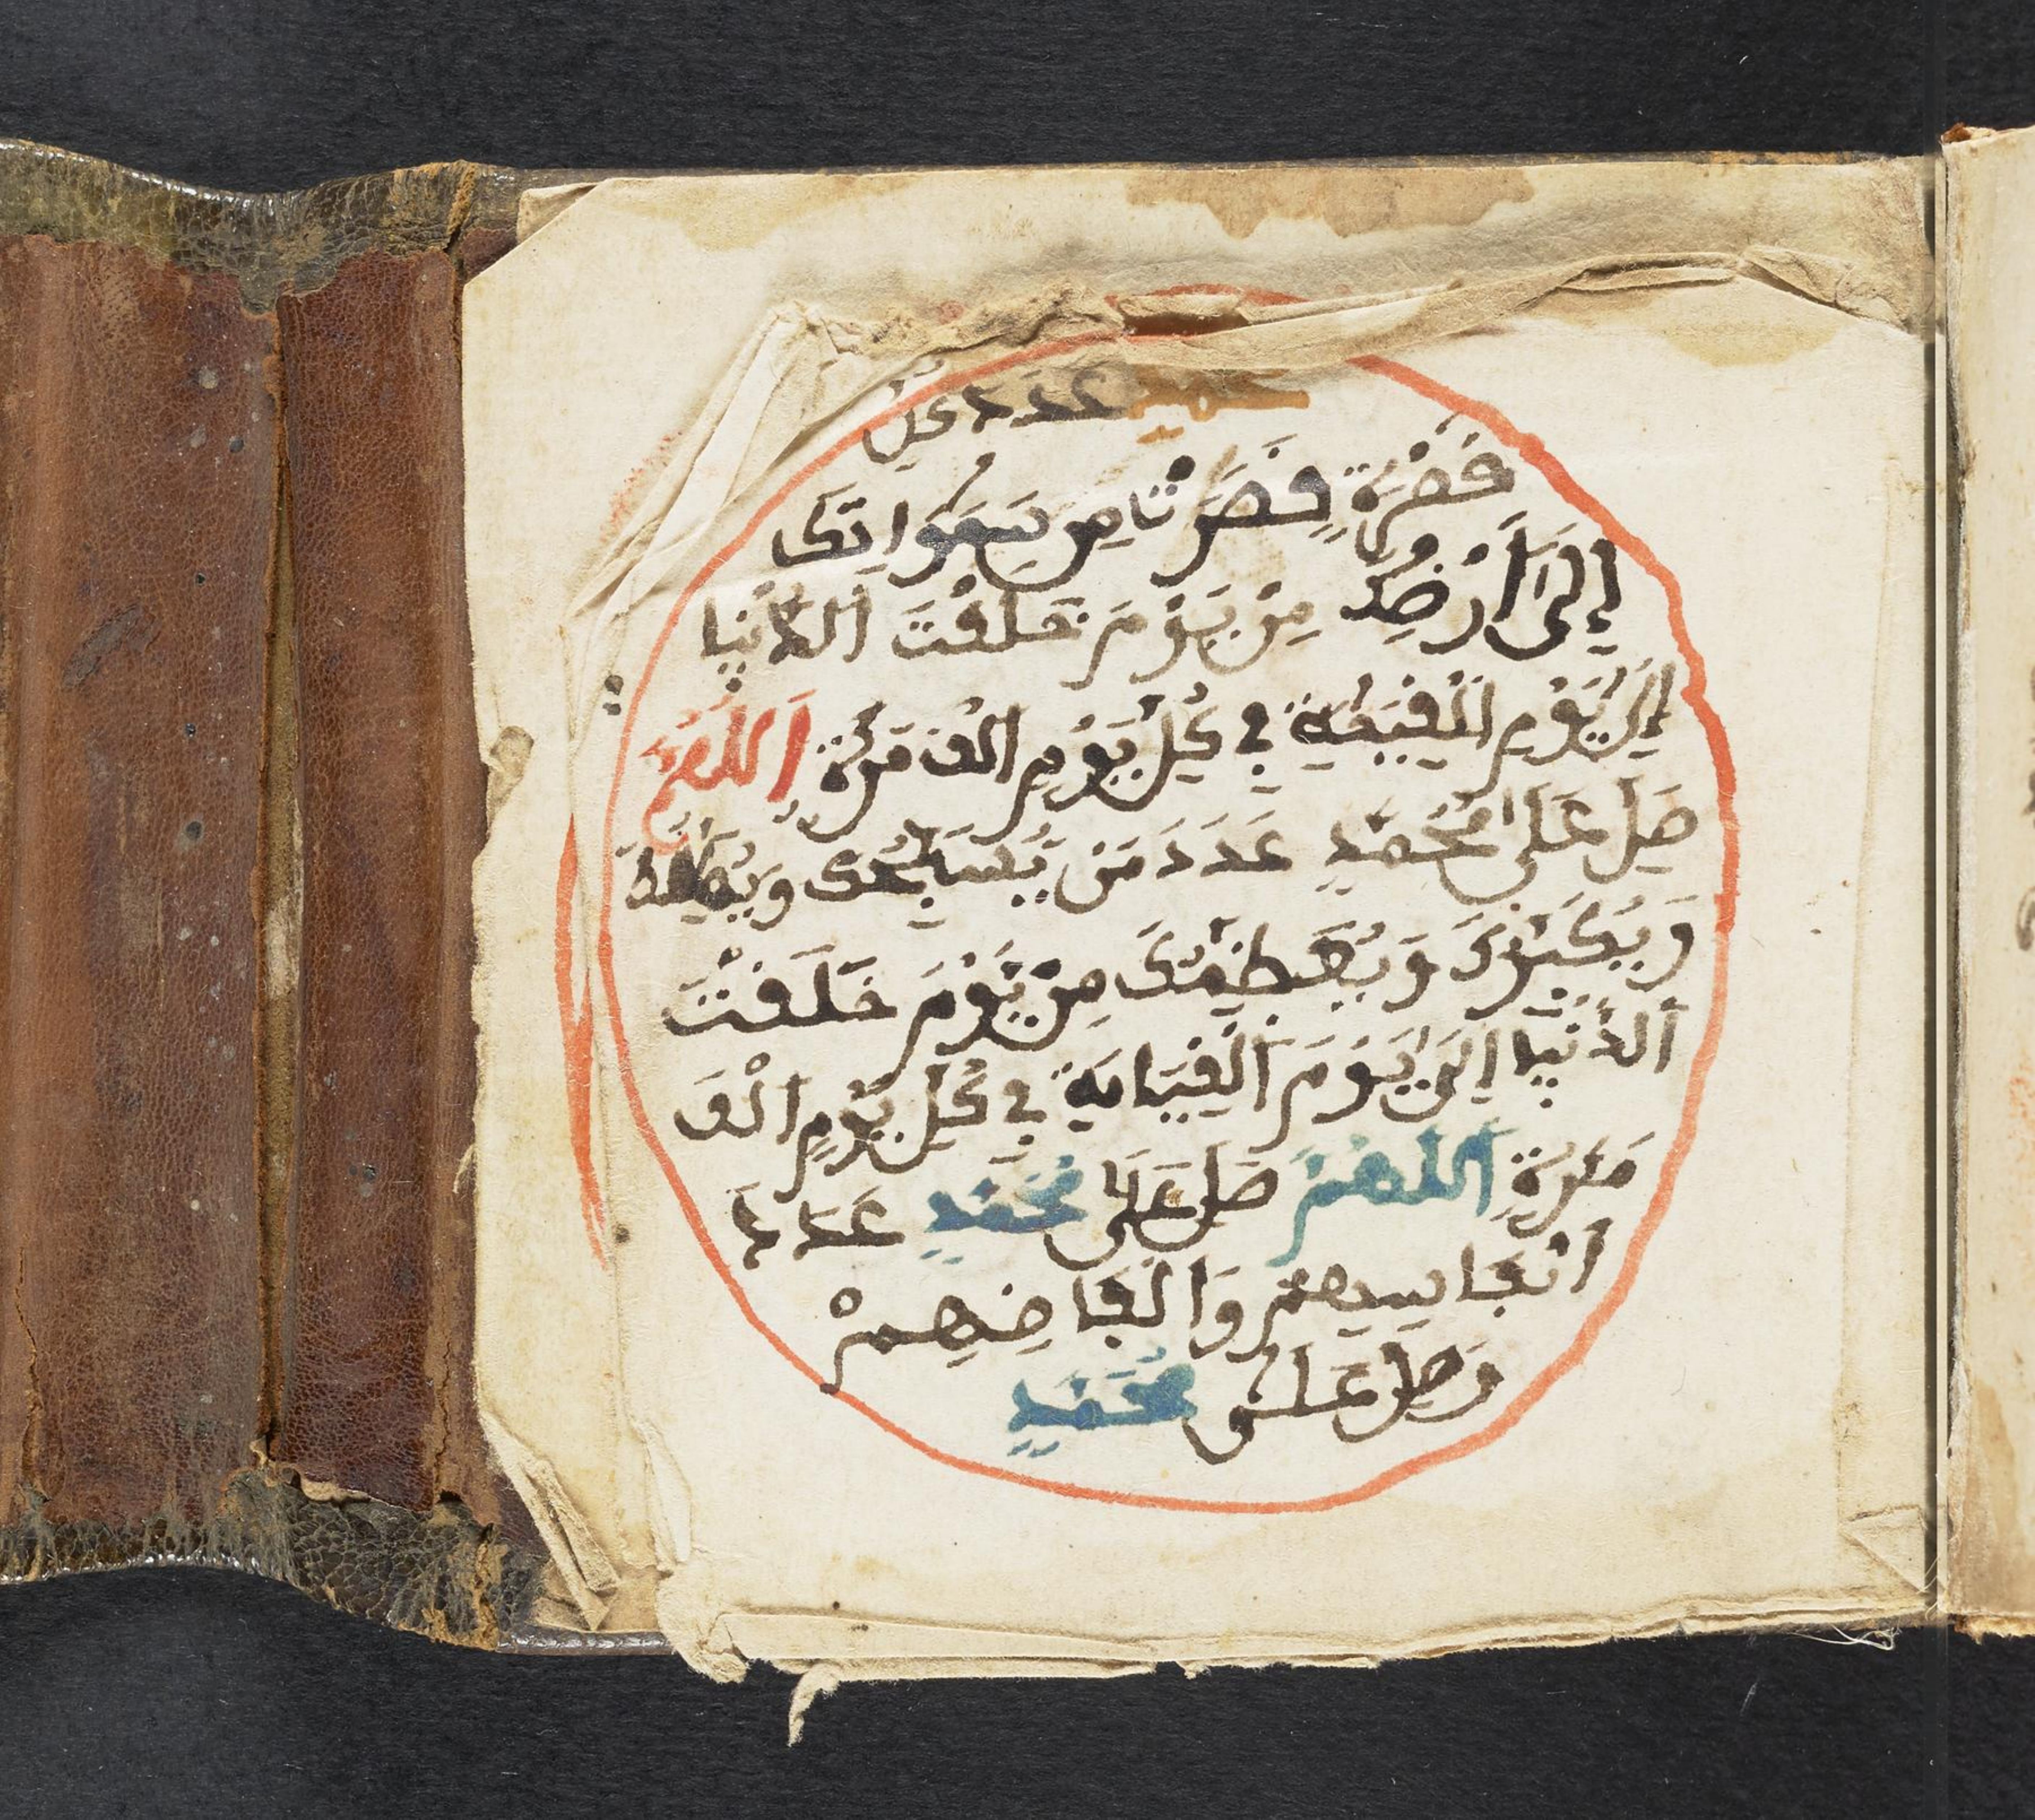 محمد عدد كل
قطرة قطرت من سمواتك
إلى أرضك من يوم خلقت الدنيا
إلى يوم القيمة في كل يوم الف مرة اللهم
صل على محمد عدد من يسبحك ويهللك
ويكبرك ويعظمك من يوم خلقت
الدنيا إلى يوم القيامة في كل يوم الف
مرة اللهم صل على محمد عدد
انفاسهم والفاضهم
وصل على محمد